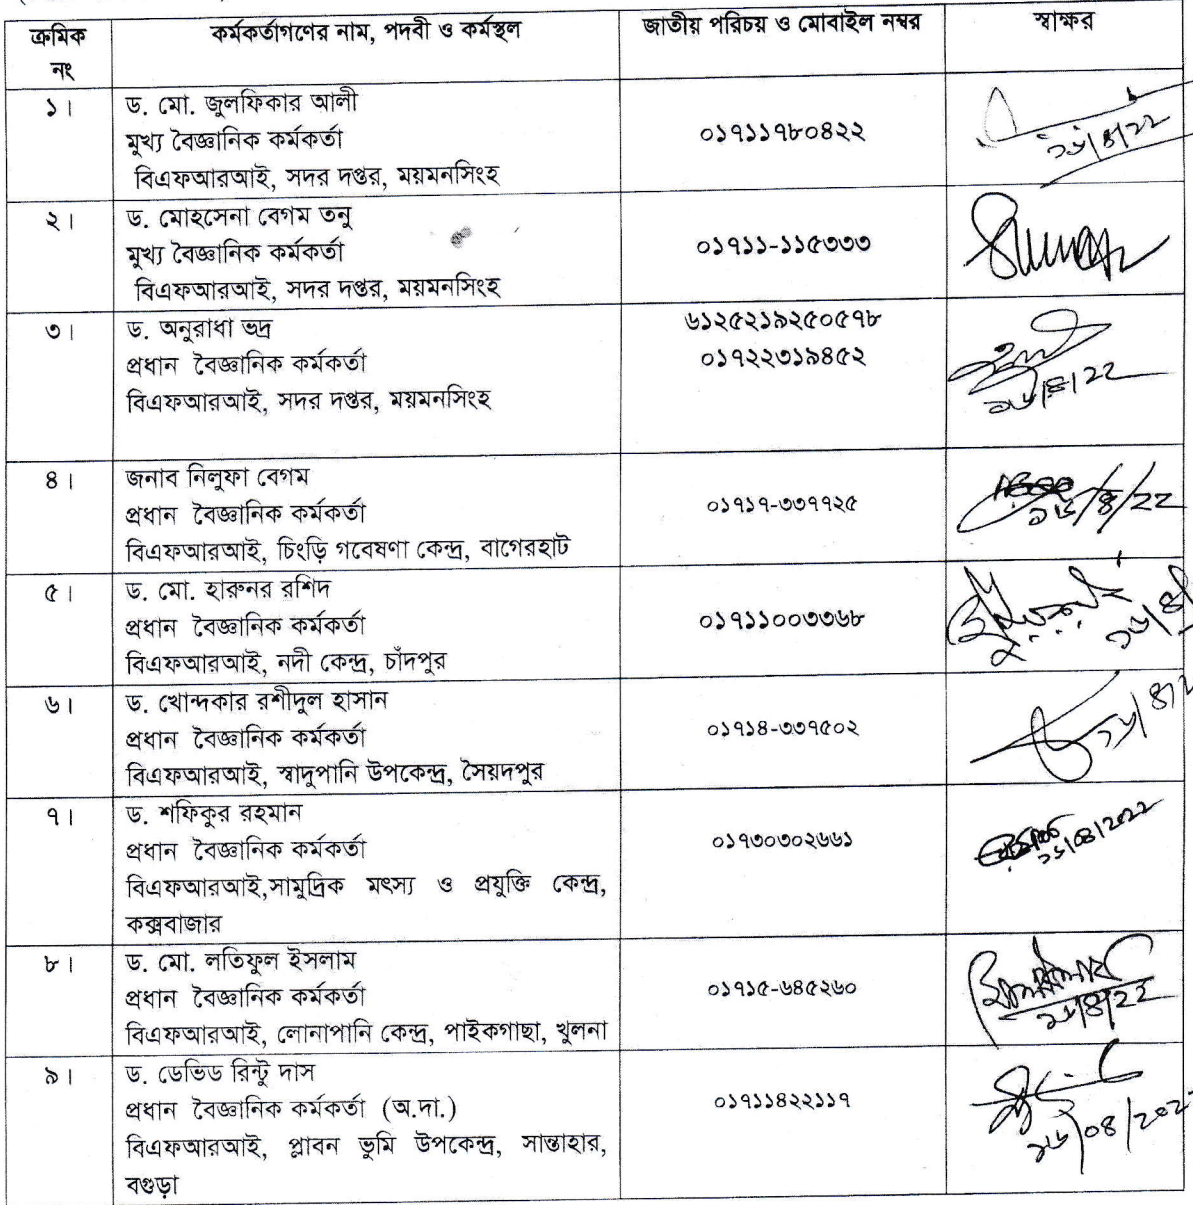 ক্রমিক নং কর্মকর্তাগণের নাম, পদবী ও কর্মস্থল জাতীয় পরিচয় ও মোবাইল নম্বর স্বাক্ষর
১। ড. মো. জুলফিকার আলী
মুখ্য বৈজ্ঞানিক কর্মকর্তা
বিএফআরআই, সদর দপ্তর, ময়মনসিংহ
০১৭১১৭৮০৪২২
২৬/৪/২২
২। ড. মোহসেনা বেগম তনু
মুখ্য বৈজ্ঞানিক কর্মকর্তা
বিএফআরআই, সদর দপ্তর, ময়মনসিংহ
০১৭১১-১১৫৩৩৩
৩। ড. অনুরাধা ভদ্র
প্রধান বৈজ্ঞানিক কর্মকর্তা
বিএফআরআই, সদর দপ্তর, ময়মনসিংহ
৬১২৫২১৯২৫০৫৭৮
০১৭২২৩১৯৪৫২
২৬/৪/২২
৪। জনাব নিলুফা বেগম
প্রধান বৈজ্ঞানিক কর্মকর্তা
বিএফআরআই, চিংড়ি গবেষণা কেন্দ্র, বাগেরহাট
০১৭১৭-৩৩৭৭২৫
২৬/৪/২২
৫। ড. মো. হারুনর রশিদ
প্রধান বৈজ্ঞানিক কর্মকর্তা
বিএফআরআই, নদী কেন্দ্র, চাঁদপুর
০১৭১১০০৩৩৬৮
২৬/৪/
৬। ড. খোন্দকার রশীদুল হাসান
প্রধান বৈজ্ঞানিক কর্মকর্তা
বিএফআরআই, স্বাদুপানি উপকেন্দ্র, সৈয়দপুর
০১৭১৪-৩৩৭৫০২
২৬/৪/২
৭। ড. শফিকুর রহমান
প্রধান বৈজ্ঞানিক কর্মকর্তা
বিএফআরআই,সামুদ্রিক মৎস্য ও প্রযুক্তি কেন্দ্র,
কক্সবাজার
০১৭৩০৩০২৬৬১
২৬/০৪/২০২২
৮। ড. মো. লতিফুল ইসলাম
প্রধান বৈজ্ঞানিক কর্মকর্তা
বিএফআরআই, লোনাপানি কেন্দ্র, পাইকগাছা, খুলনা
০১৭১৫-৬৪৫২৬০
২৬/৪/২২
৯। ড. ডেভিড রিন্টু দাস
প্রধান বৈজ্ঞানিক কর্মকর্তা (অ.দা.)
বিএফআরআই, প্লাবন ভূমি উপকেন্দ্র, সান্তাহার,
বগুড়া
০১৭১১৪২২১১৭
২৬/০৪/২০২